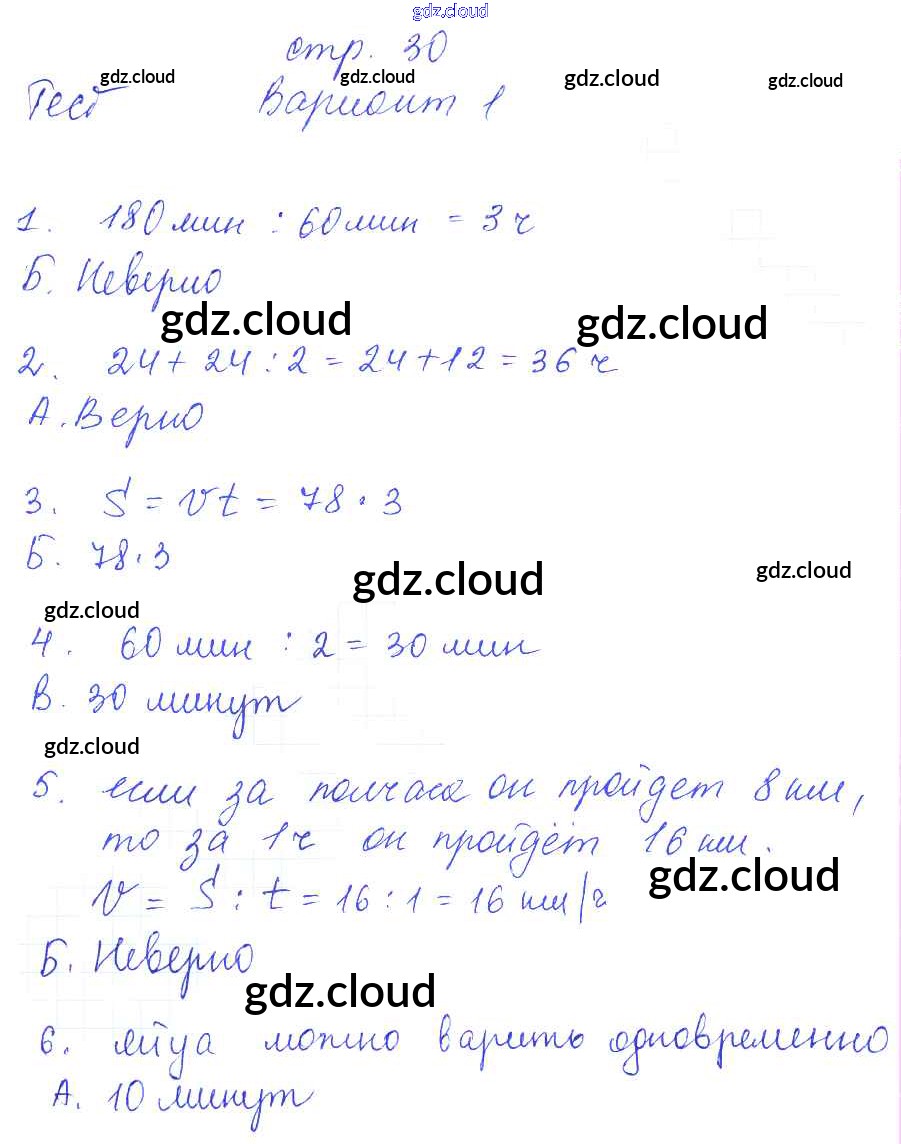 gdz.cloud
стр. 30
gdz.cloud gdz.cloud gdz.cloud gdz.cloud
Тест Вариант 1
1. 180 мин : 60 мин = 3 ч
Б. Неверно
gdz.cloud gdz.cloud
2. 24 + 24 : 2 = 24 + 12 = 36 ч
А. Верно
3. S = vt = 78 · 3
Б. 78 · 3
gdz.cloud gdz.cloud
gdz.cloud
4. 60 мин : 2 = 30 мин
В. 30 минут
gdz.cloud
5. если за полчаса он пройдет 8 км,
то за 1 ч он пройдёт 16 км.
gdz.cloud
v = S : t = 16 : 1 = 16 км/ч
Б. Неверно
gdz.cloud
6. яйца можно варить одновременно
А. 10 минут